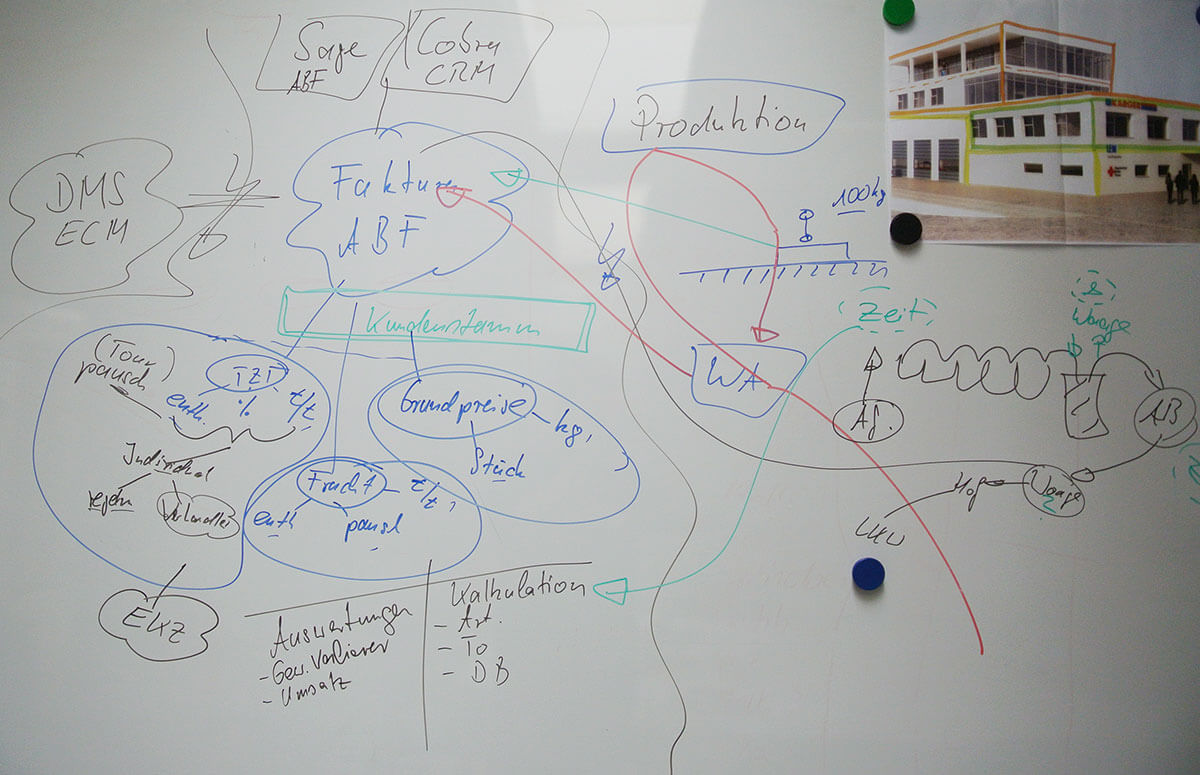 Sage
ABF
Cobra
CRM
Produktion
DMS
ECM
Faktura
ABF
100kg
Kundenstamm
Zeit
Waage
(Tour)
pausch
TZT
enth.
%
€/t
Grundpreise
kg,
Stück
WA
AB
Individual
Fracht
€/t,
enth
pausch
Waage
Hof
LKW
EKZ
Auswertungen
- Gew. Verlierer
- Umsatz
Kalkulation
- Art.
- To
- DB